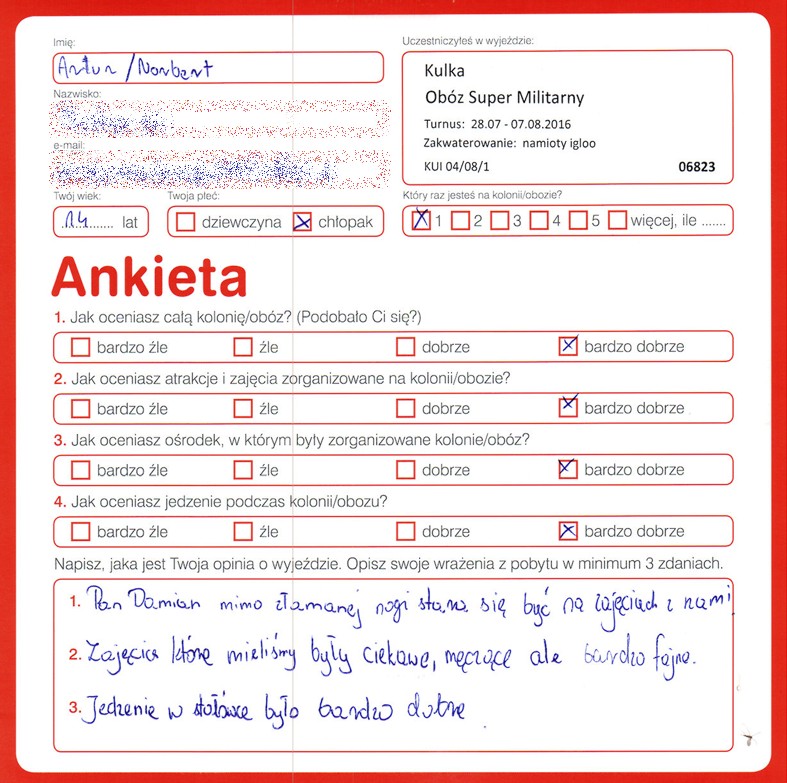 Imię:
Artur / Norbert
Nazwisko:
e-mail:
Twój wiek:
14 lat
Twoja płeć:
dziewczyna chłopak
Uczestniczyłeś w wyjeździe:
Kulka
Obóz Super Militarny
Turnus: 28.07 - 07.08.2016
Zakwaterowanie: namioty igloo
KUI 04/08/1 06823
Który raz jesteś na kolonii/obozie?
1 2 3 4 5 więcej, ile .......
Ankieta
1. Jak oceniasz całą kolonię/obóz? (Podobało Ci się?)
bardzo źle źle dobrze bardzo dobrze
2. Jak oceniasz atrakcje i zajęcia zorganizowane na kolonii/obozie?
bardzo źle źle dobrze bardzo dobrze
3. Jak oceniasz ośrodek, w którym były zorganizowane kolonie/obóz?
bardzo źle źle dobrze bardzo dobrze
4. Jak oceniasz jedzenie podczas kolonii/obozu?
bardzo źle źle dobrze bardzo dobrze
Napisz, jaka jest Twoja opinia o wyjeździe. Opisz swoje wrażenia z pobytu w minimum 3 zdaniach.
1. Pan Damian mimo złamanej nogi stara się być na zajęciach z nami
2. Zajęcia które mieliśmy były ciekawe, męczące ale bardzo fajne.
3. Jedzenie w stołówce było bardzo dobre